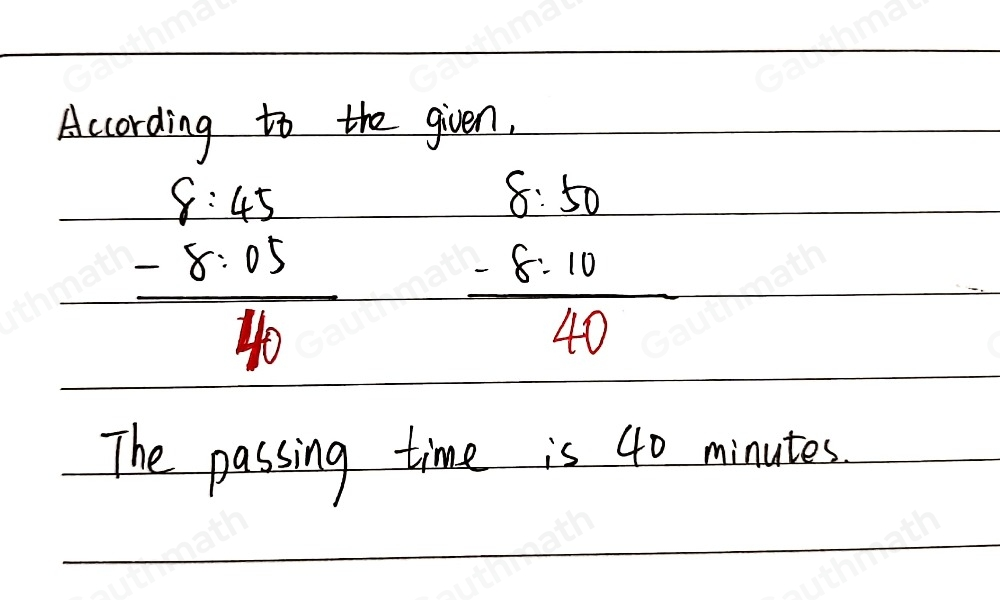 According to the given,
8:45 8:50
- 8:05 - 8:10
40 40
The passing time is 40 minutes.